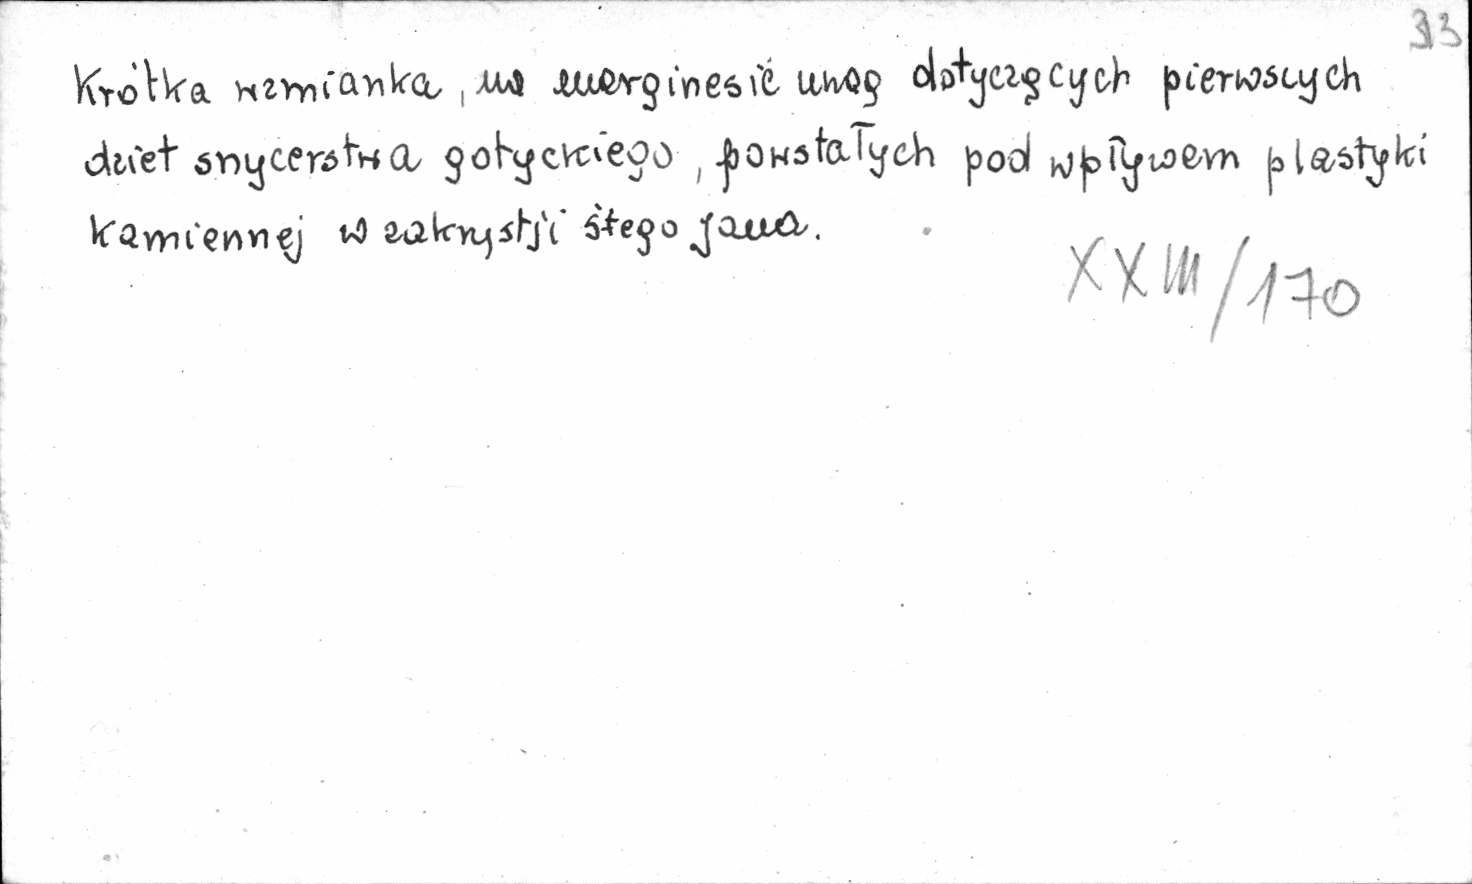 33
Krótka wzmianka, na marginesie uwag dotyczących pierwszych
dzieł snycerstwa gotyckiego, powstałych pod wpływem plastyki
kamiennej w zakrystji śtego Jana.
XXIII/170